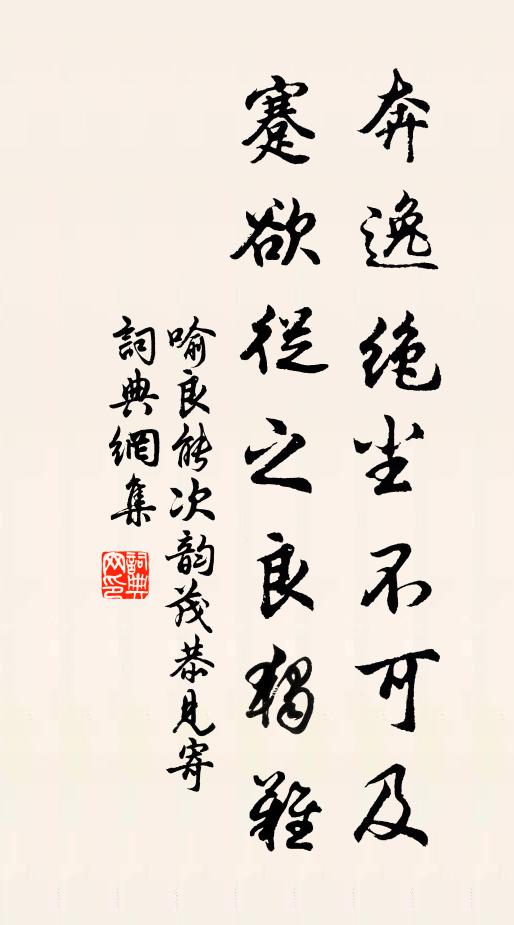 奔逸絶尘不可及
蹇欲從之良獨難
喻良能次韵茂恭見寄
詞典網集
詞典网印